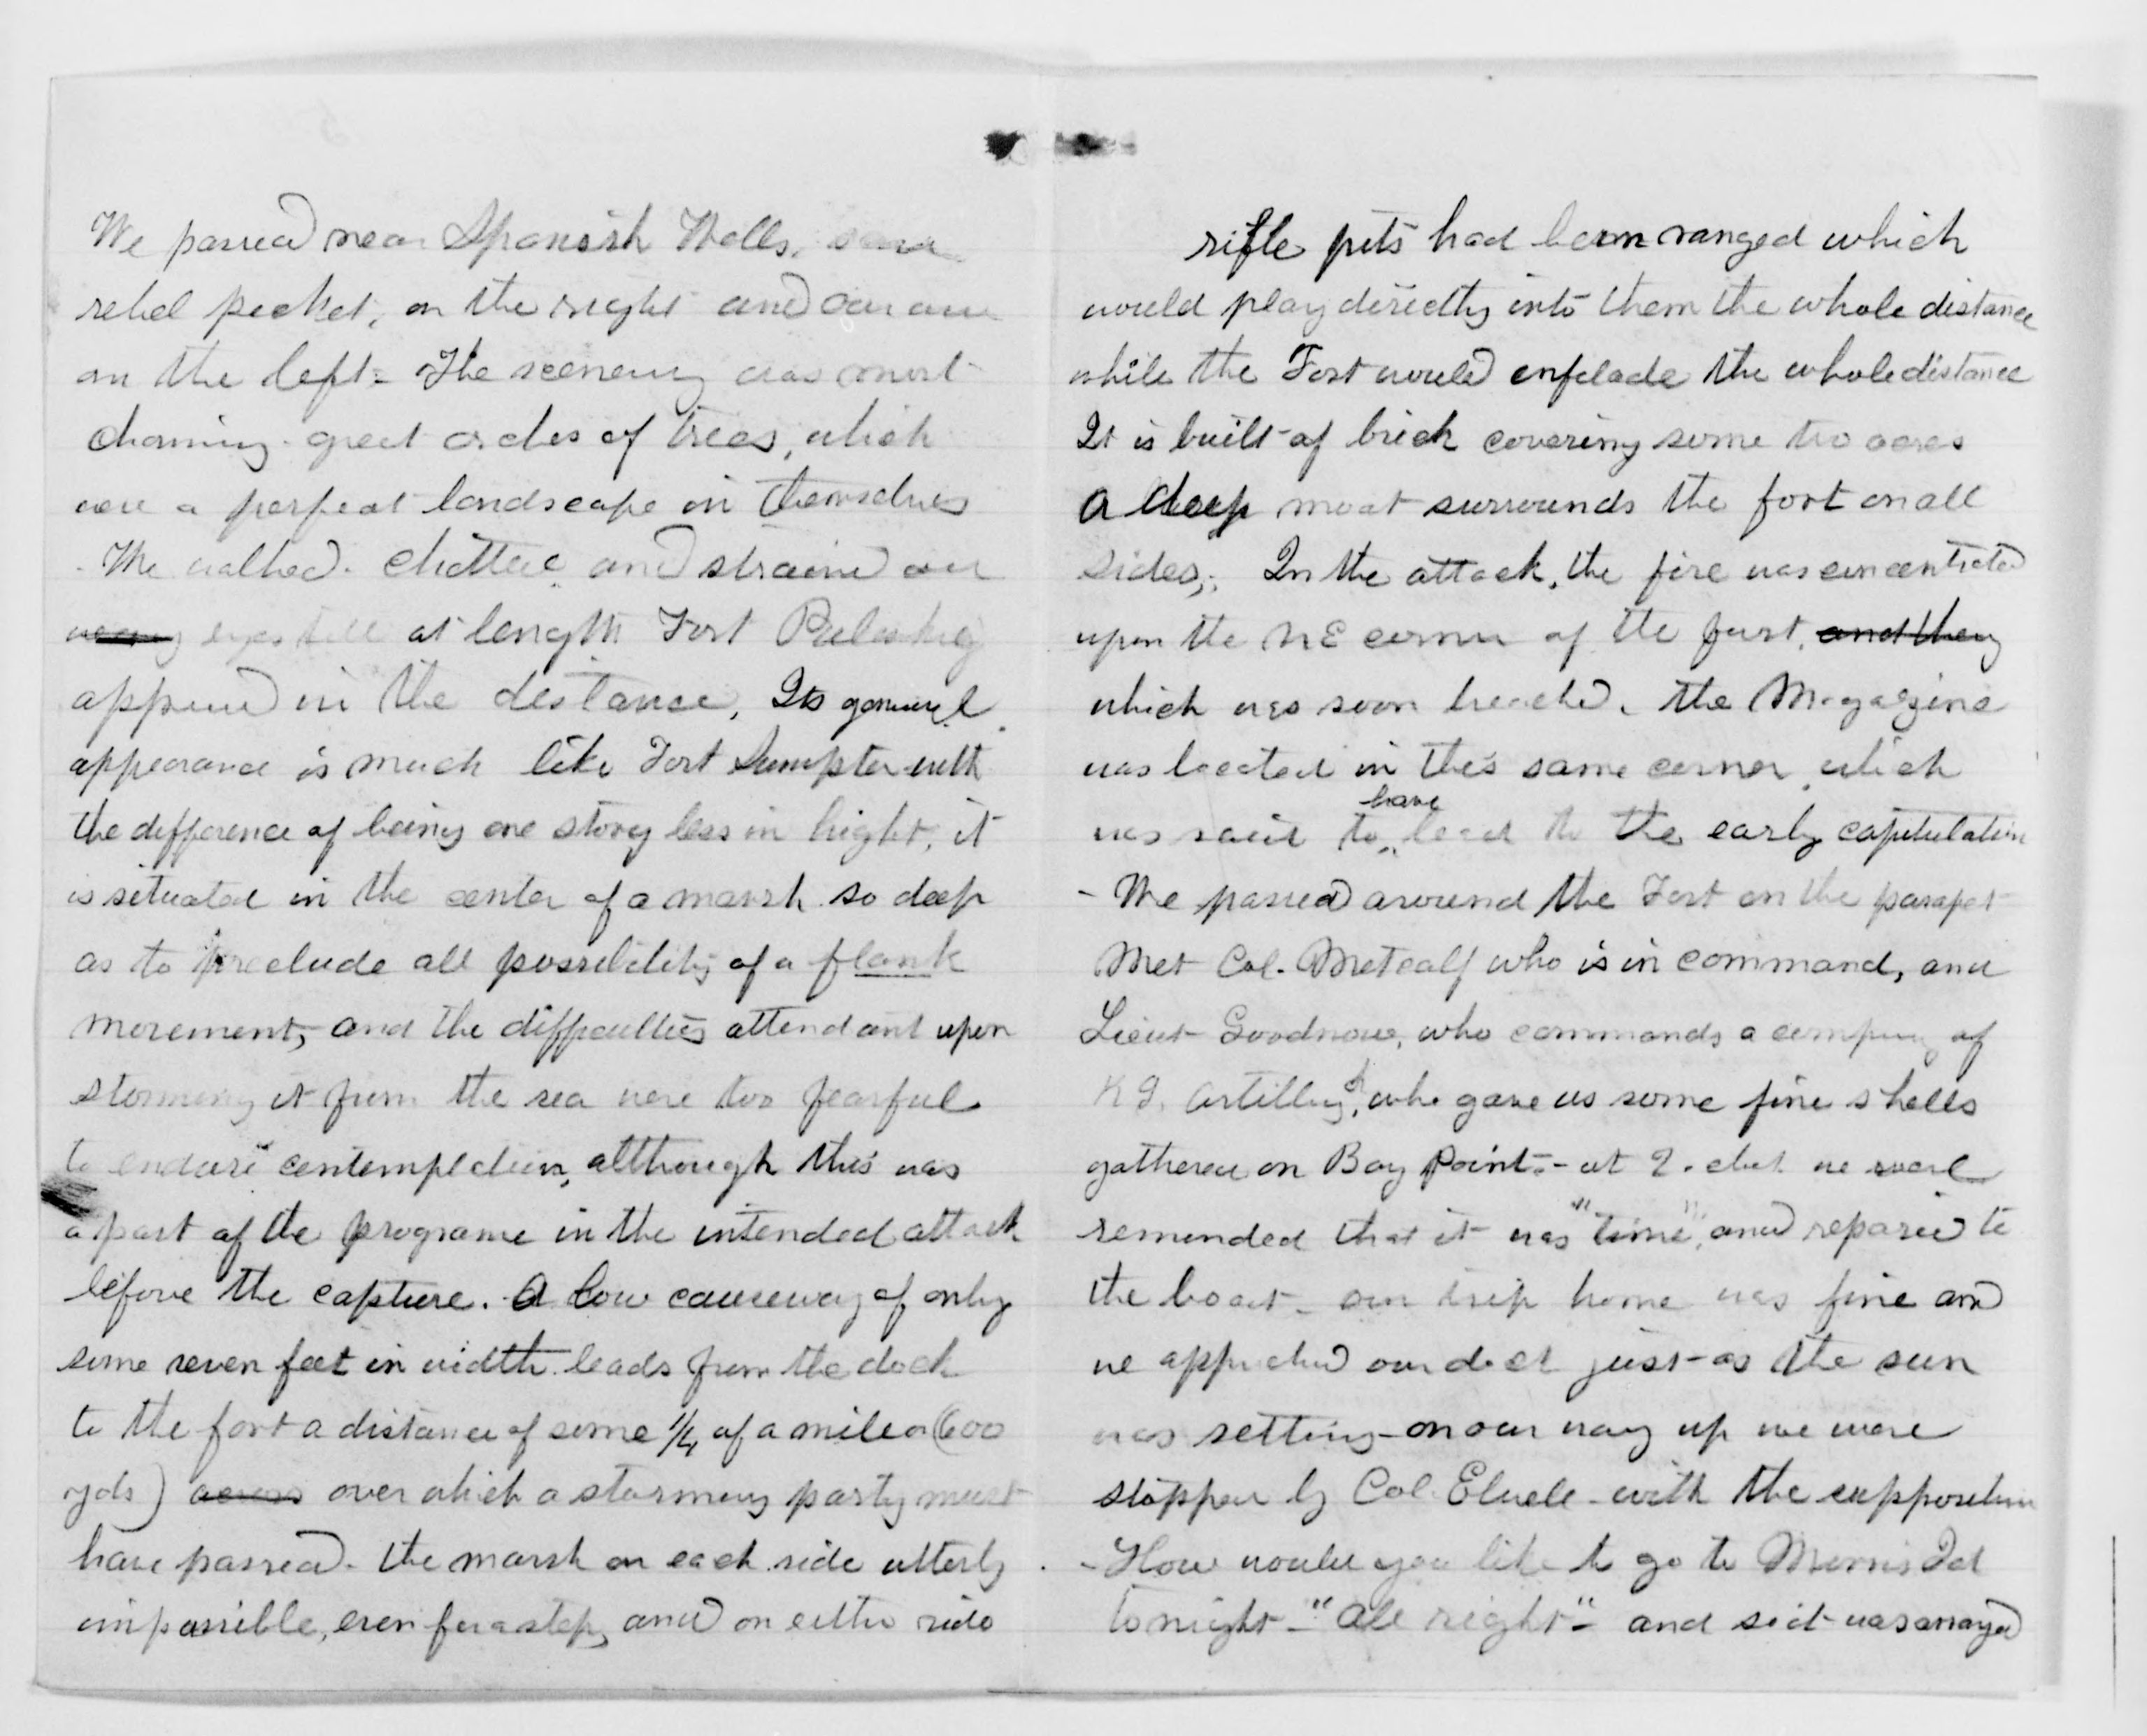 We passed near Spanish Wells, saw
rebel picket, on the right and our own
on the left - The scenery was most
charming - great arches of trees, which
were a perfect landscape in themselves
- We walked - chatted and strained our
weary eyes till at length Fort Pulaskig
appeared in the distance, Its general
appearance is much like Fort Sumpter with
the difference of being one storey less in hight, it
is situated in the center of a marsh so deep
as to preclude all possibility of a flank
movement, and the difficulties attendant upon
storming it from the sea were too fearful
to endure contemplation, although this was
a part of the programe in the intended attack
before the capture. A low causeway of only
some seven feet in width leads from the dock
to the fort a distance of some 1/4 of a mile or (600
yds) across over which a storming party must
have passed - the marsh on each side utterly
impassible, even for a step, and on either side
rifle pits had been ranged which
would play directly into them the whole distance
while the Fort would enfilade the whole distance
It is built of brick covering some two acres
A deep moat surrounds the fort on all
sides,. In the attack, the fire was concentrated
upon the N E corner of the fort, and they
which was soon breached, the Magazine
was located in this same corner, which
was said to have lead to the early capitulation
- We passed around the Fort on the parapet
Met Col. Metcalf who is in command, and
Lieut Goodnow, who commands a company of
R I. Artillery, who gave us some fine shells
gathered on Bay Point - at 2. we were
reminded that it was "time", and repaired to
the boat - our trip home was fine and
we approached our dock just as the sun
was setting - on our way up we were
stopped by Col. Elwell - with the supposition
- How would you like to go to Morris Isd
tonight - "All right" - and so it was arranged